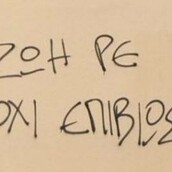 ΖΩΗ ΡΕ
ΟΧΙ ΕΠΙΒΙΩΣ